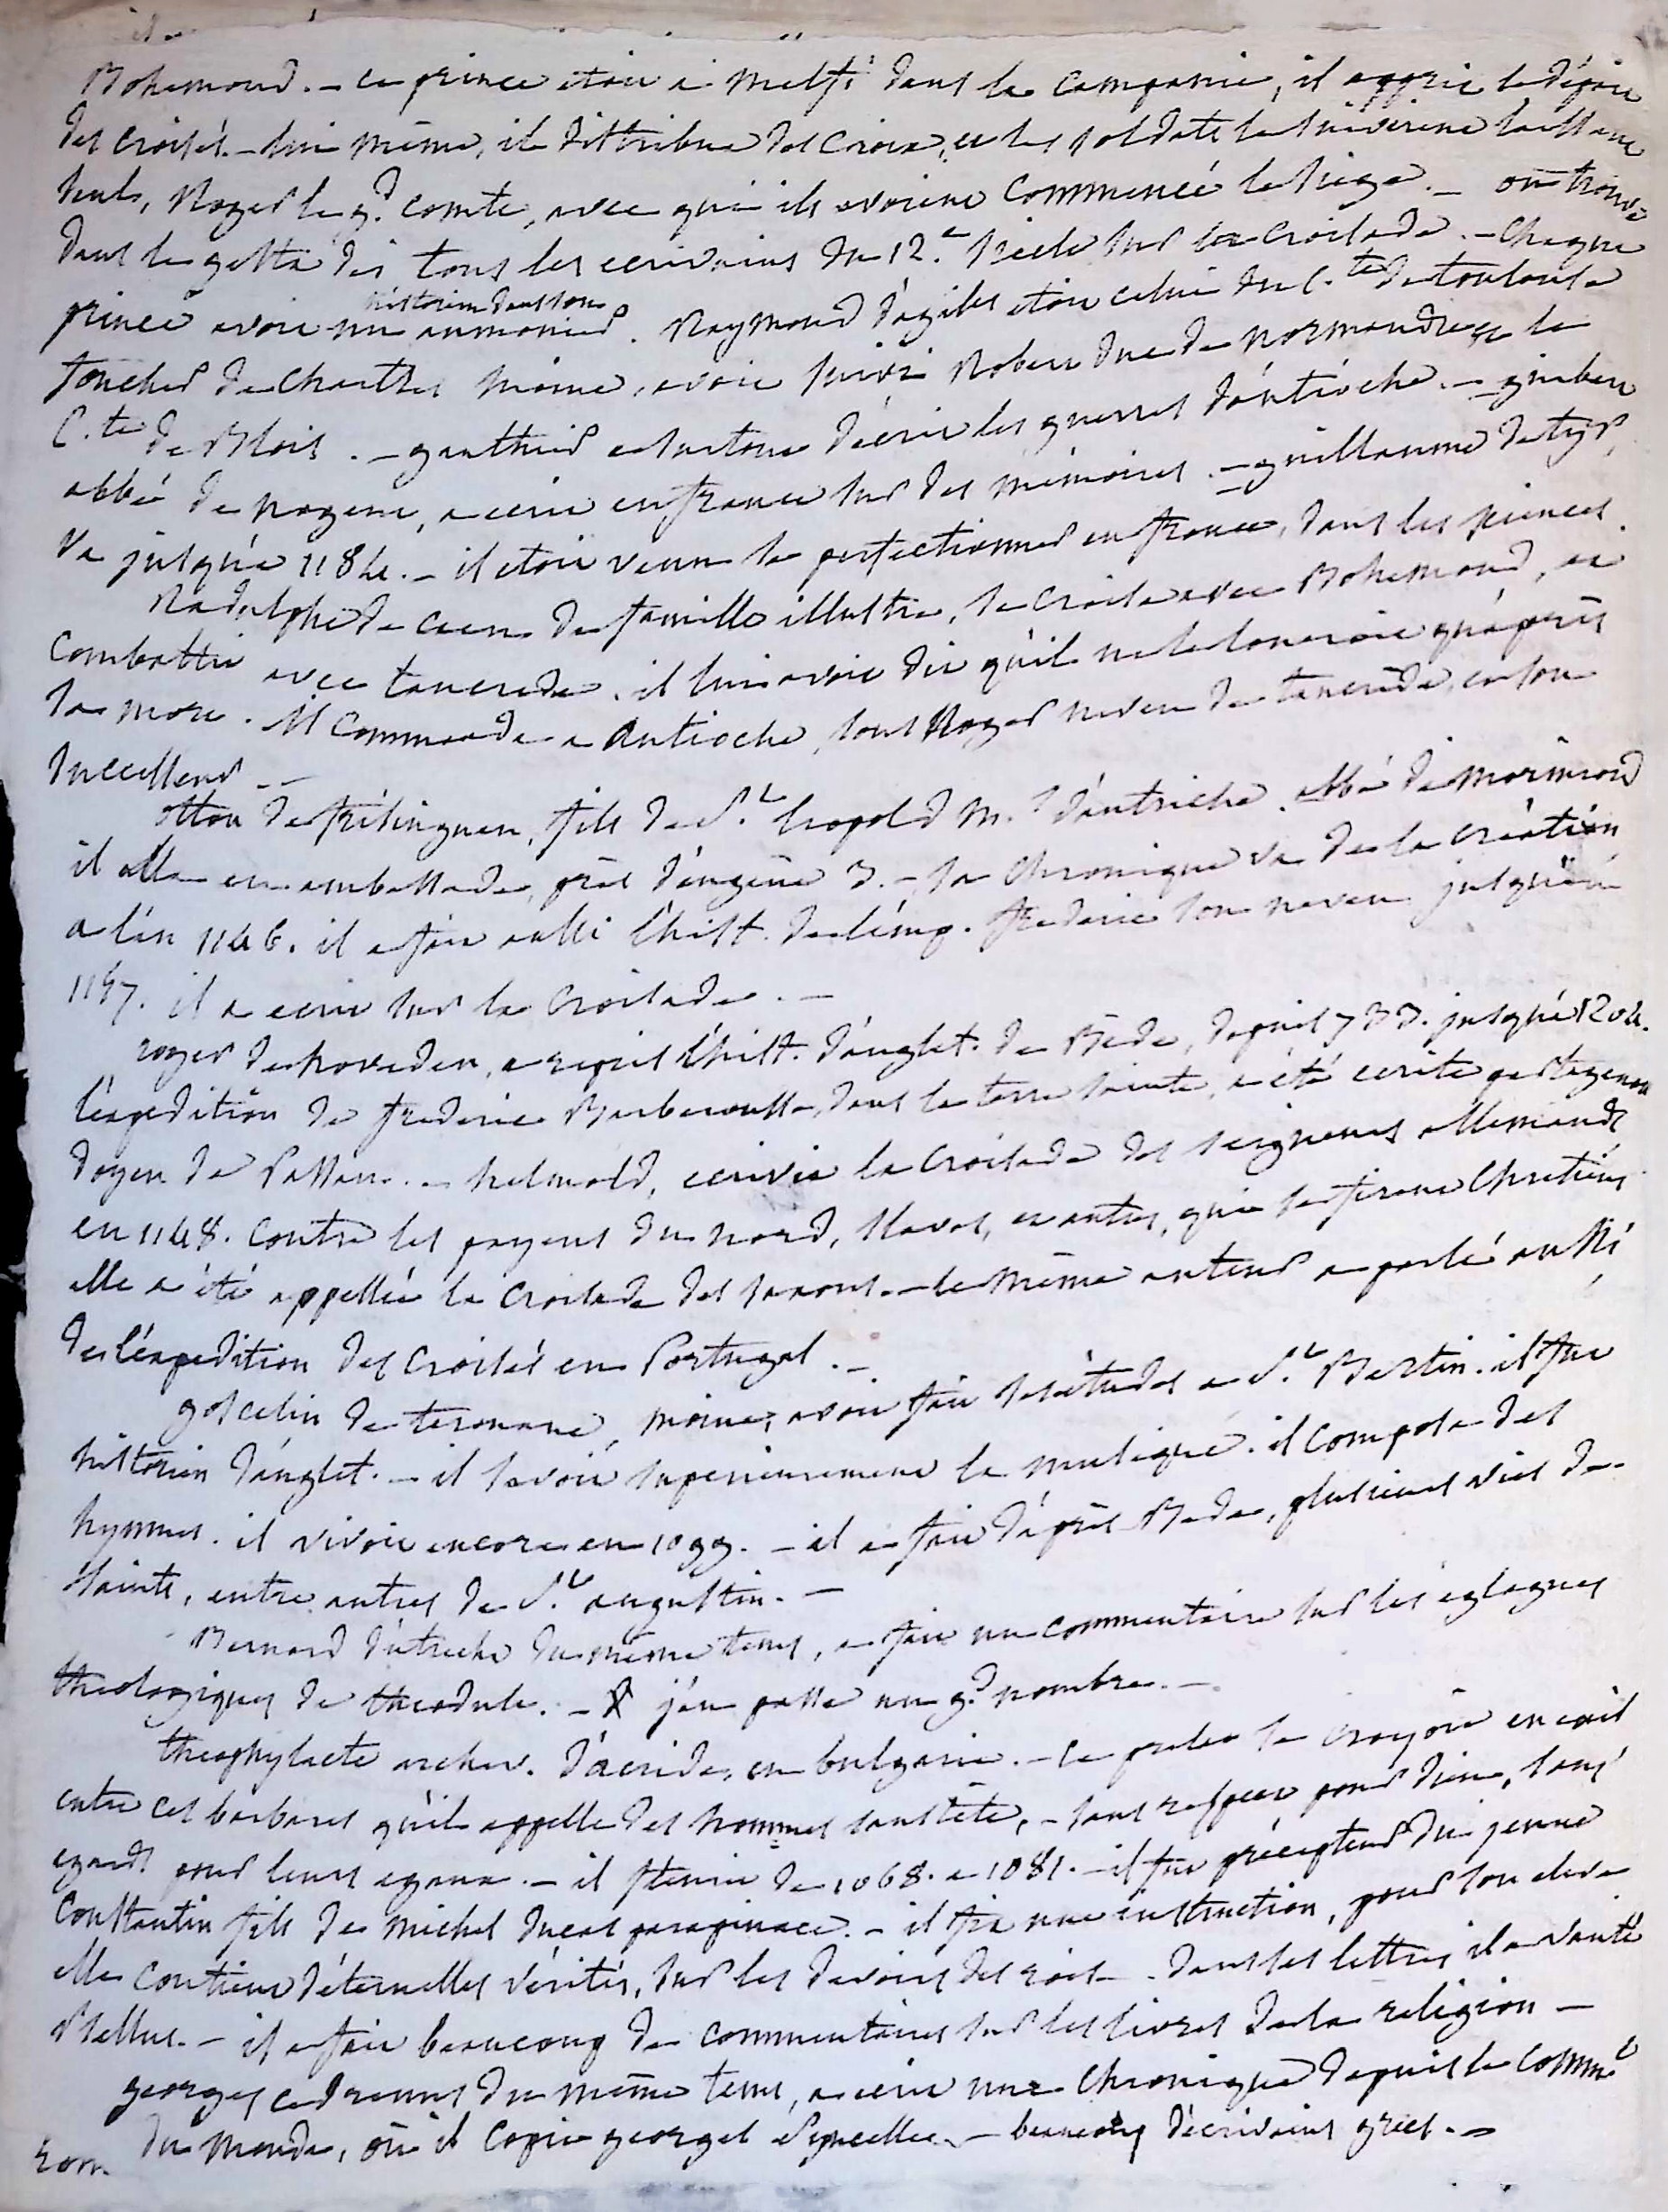 Bohemond. – ce prince etoit a Melfi dans la Campanie, il apprit le départ
des croisés. – lui même, il distribua des Croix, et les soldats le suivirent laissant
seuls, Roger le gd. comte, avec qui ils avoient commencé le siège. – on trouve
dans le gesta dei tous les ecrivains du 12.e siècle sur la croisade. – Chaque
prince avoit un historien dans son aumonier. Raymond d'agiles etoit celui du C.te de toulouse
foucher de Chartres moine, avoit suivi Robert duc de normandie et le
C.te de Blois. – gauthier a surtout décrit les guerres d'antioche. – guibert
abbé de nogent, a ecrit en france sur des mémoires. – guillaume de tyr,
va jusqu'à 1184. – il etoit venu se perfectionner en france, dans les sciences.
Radulphe de Caen de famille illustre, se croisa avec Bohemond, et
Combattit avec tancrede. il lui avoit dit qu'il ne le loueroit qu'après
sa mort. Il commanda a Antioche, sous Roger neveu de tancrède, et son
successeur –
otton de frisinguen, fils de St. leopold M.s d'autriche. abbé de morimond
il alla en ambassade, près d'eugène 3. – sa Chronique va de la création
a l'an 1146. il a fait aussi l'hist. de l'emp. frederic son neveu jusqu'en
1157. il a ecrit sur la Croisade. –
roger de hoveden, a repris l'hist. d'anglet. de Bede, depuis 733. jusqu'à 1204.
l'expedition de frederic Barberousse, dans la terre sainte, a été ecrite par tagenon
doyen de Passau. – helmold, ecrivit la Croisade des seigneurs allemands
en 1148. contre les payens du nord, slaves, et autres, qui se firent Chretiens
elle a été appellée la croisade des saxons. – le même auteur a parlé aussi
de l'expedition des Croisés en Portugal. –
goscelin de terouane, moine, avoit fait ses études a St. Bertin. il fut
historien d'anglet. – il savoit superieurement la musique. il composa des
hymnes. il vivoit encore en 1099. – il a fait d'après Bede, plusieurs vies de
saints, entre autres de St. augustin. –
Bernard d'utrecht du même tems, a fait un commentaire sur les eglogues
theologiques de theodule. – j'en passe un gd. nombre. –
theophylacte archev. d'acride, en bulgarie. – ce prelat se croyoit en exil
entre ces barbares qu'il appelle des hommes sans tête, – sans respect pour dieu, sans
egards pour leurs egaux. – il fleurit de 1068. a 1081. – il fut précepteur du jeune
Constantin fils de Michel ducas parapinace. – il fit une instruction, pour son eleve
elle contient d'éternelles vérités, sur les devoirs des rois. – dans ses lettres il a vanté
Psellus. – il a fait beaucoup de commentaires sur les livres de la religion –
georges cedrenus du même tems, a ecrit une Chronique depuis le comm.t
du monde, où il copie georges Syncelle. – beaucoup d'écrivains grecs. –